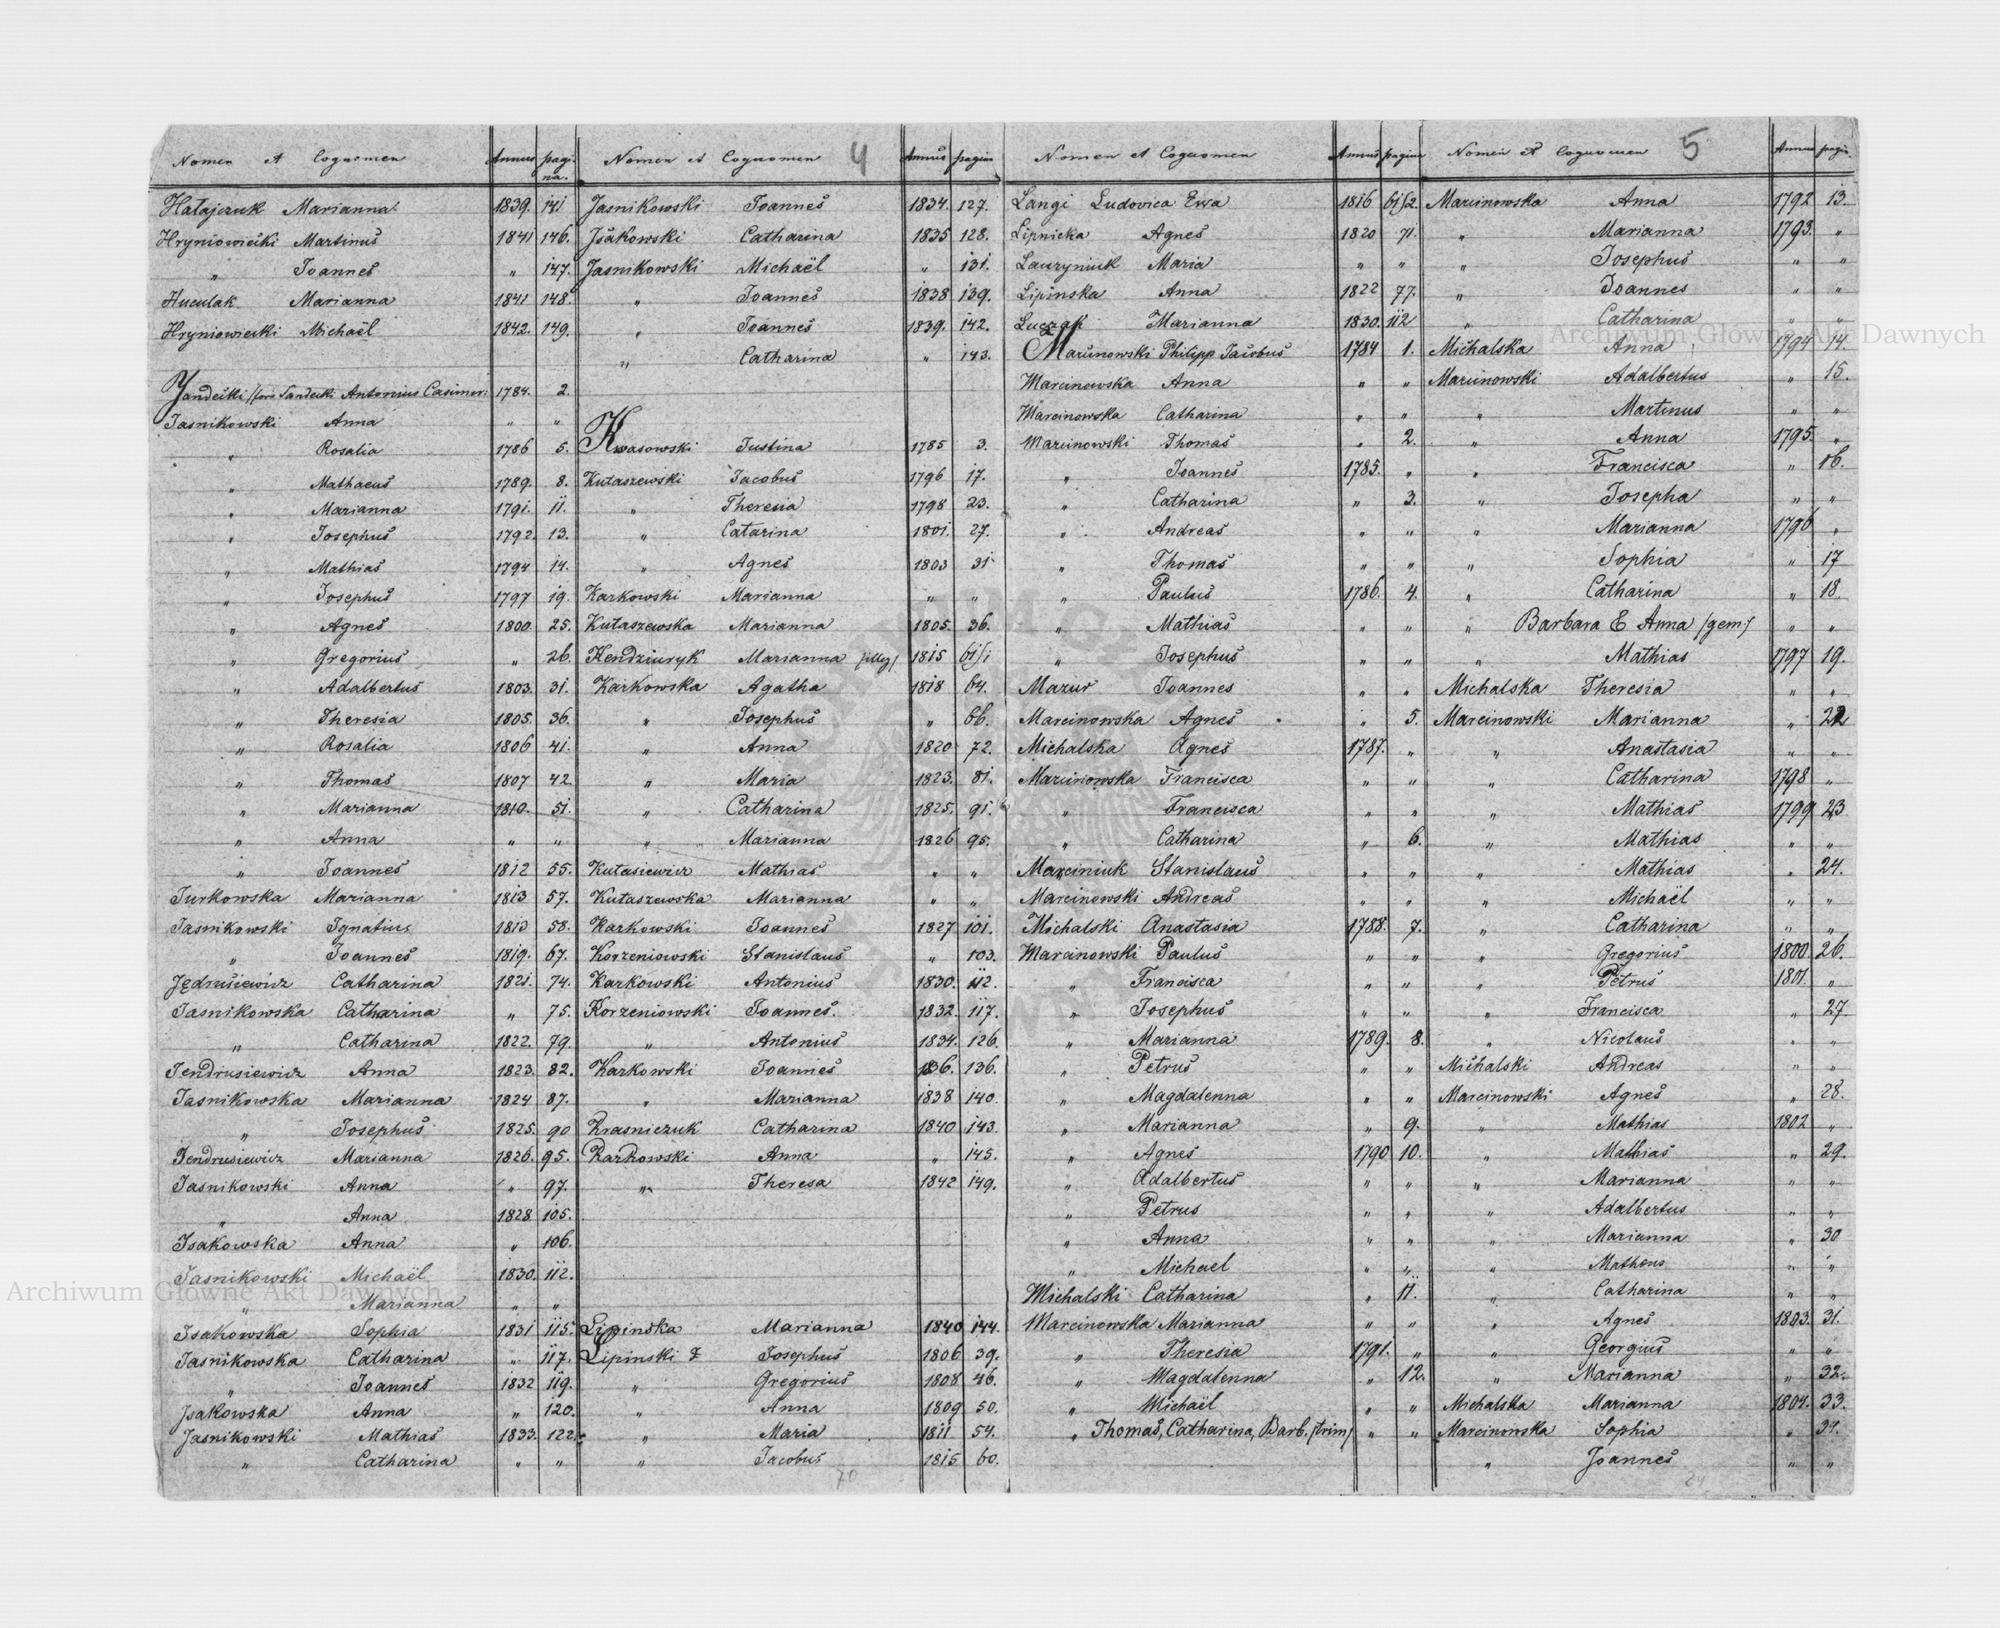 4
Nomen et Cognomen Annus pagina.
Hatajczuk Marianna 1839. 141
Hryniowiecki Martinus 1841 146.
" Joannes " 147.
Huculak Marianna 1841 148.
Hryniowiecki Michaël 1842. 149.
Antonius Casimir: 1784. 2.
Jasnikowski Anna " "
" Rosalia 1786 5.
" Mathaeus 1789. 8.
" Marianna 1791. 11.
" Josephus 1792. 13.
" Mathias 1794 14.
" Josephus 1797 19.
" Agnes 1800. 25.
" Gregorius " 26.
" Adalbertus 1803. 31.
" Theresia 1805. 36.
" Rosalia 1806 41.
" Thomas 1807 42.
" Marianna 1810. 51.
" Anna " "
" Joannes 1812 55.
Jurkowska Marianna 1813 57.
Jasnikowski Ignatius 1813 58.
" Joannes 1819. 67.
Jędrusiewicz Catharina 1821. 74.
Jasnikowska Catharina " 75.
" Catharina 1822. 79.
Jendrusiewicz Anna 1823. 82.
Jasnikowska Marianna 1824 87.
" Josephus 1825. 90
Jendrusiewicz Marianna 1826. 95.
Jasnikowski Anna " 97.
" Anna 1828 105.
Isakowska Anna " 106.
Jasnikowski Michaël 1830. 112.
" Marianna " "
Isakowska Sophia 1831 115.
Jasnikowska Catharina " 117.
" Joannes 1832 119.
Jsakowska Anna " 120.
Jasnikowski Mathias 1833. 122.
" Catharina " "
Nomen et Cognomen Annus pagina
Jasnikowski Joannes 1834. 127.
Jsakowski Catharina 1835 128.
Jasnikowski Michaël " 131.
" Joannes 1838 139.
" Joannes 1839. 142.
" Catharina " 143.
Kwasowski Justina 1785 3.
Kutaszewski Jacobus 1796 17.
" Theresia 1798 23.
" Catarina 1801. 27.
" Agnes 1803 31
Karkowski Marianna " "
Kutaszewska Marianna 1805. 36.
Kendziuryk Marianna 1815 61/1
Karkowska Agatha 1818 64.
" Josephus " 66.
" Anna 1820 72.
" Maria 1823. 81.
" Catharina 1825. 91.
" Marianna 1826 95.
Kutasiewicz Mathias " "
Kutaszewska Marianna " "
Karkowski Joannes 1827 101.
Korzeniowski Stanislaus " 103.
Karkowski Antonius 1830. 112.
Korzeniowski Joannes. 1832. 117.
" Antonius 1834. 126.
Karkowski Joannes 136.
" Marianna 1838 140.
Krasniczuk Catharina 1840 143.
Karkowski Anna " 145.
" Theresa 1842 149.
Lipinska Marianna 1840 144.
Lipinski Josephus 1806 39.
" Gregorius 1808 46.
" Anna 1809 50.
" Maria 1811 54.
" Jacobus 1815 60.
70
5
Nomen et Cognomen Annus pagina
Langi Ludovica Ewa 1816 61/2.
Lipnicka Agnes 1820 71.
Lauryniuk Maria " "
Lipinska Anna 1822 77.
Luczak Marianna 1830. 112
Marcinowski Philipp Jacobus 1784 1.
Marcinowska Anna " "
Marcinowska Catharina " "
Marcinowski Thomas " 2.
" Joannes 1785. "
" Catharina " 3.
" Andreas " "
" Thomas " "
" Paulus 1786. 4.
" Mathias " "
" Josephus " "
Mazur Joannes " "
Marcinowska Agnes " 5.
Michalska Agnes 1787. "
Marcinowska Francisca " "
" Francisca " "
" Catharina " 6.
Marciniuk Stanislaus " "
Marcinowski Andreas " "
Michalski Anastasia 1788. 7.
Marcinowski Paulus " "
" Francisca " "
" Josephus " "
" Marianna 1789. 8.
" Petrus " "
" Magdalenna " "
" Marianna " 9.
" Agnes 1790 10.
" Adalbertus " "
" Petrus " "
" Anna " "
" Michael " "
Michalski Catharina " 11.
Marcinowska Marianna " "
" Theresia 1791. "
" Magdalenna " 12.
" Michaël " "
" Thomas, Catharina, Barb. /trim/ " "
Nomen et Cognomen Annus pagin.
Marcinowska Anna 1792 13.
" Marianna 1793. "
" Josephus " "
" Joannes " "
" Catharina " "
Michalska Anna 1794 14.
Marcinowski Adalbertus " 15.
" Martinus " "
" Anna 1795. "
" Francisca " 16.
" Josepha " "
" Marianna 1796 "
" Sophia " 17
" Catharina " 18.
" Barbara E Anna /gem/ " "
" Mathias 1797 19.
Michalska Theresia " "
Marcinowski Marianna " 22
" Anastasia " "
" Catharina 1798 "
" Mathias 1799 23
" Mathias " "
" Mathias " 24.
" Michaël " "
" Catharina " "
" Gregorius 1800. 26.
" Petrus 1801. "
" Francisca " 27.
" Nicolaus " "
Michalski Andreas " "
Marcinowski Agnes " 28.
" Mathias 1802 "
" Mathias " 29.
" Marianna " "
" Adalbertus " "
" Marianna " 30
" Matheus " "
" Catharina " "
" Agnes 1803. 31.
" Georgius " "
" Marianna " 32.
Michalska Marianna 1804. 33.
Marcinowska Sophia " 34.
" Joannes " "
24
Archiwum Główne Akt Dawnych
Archiwum Główne Akt Dawnych